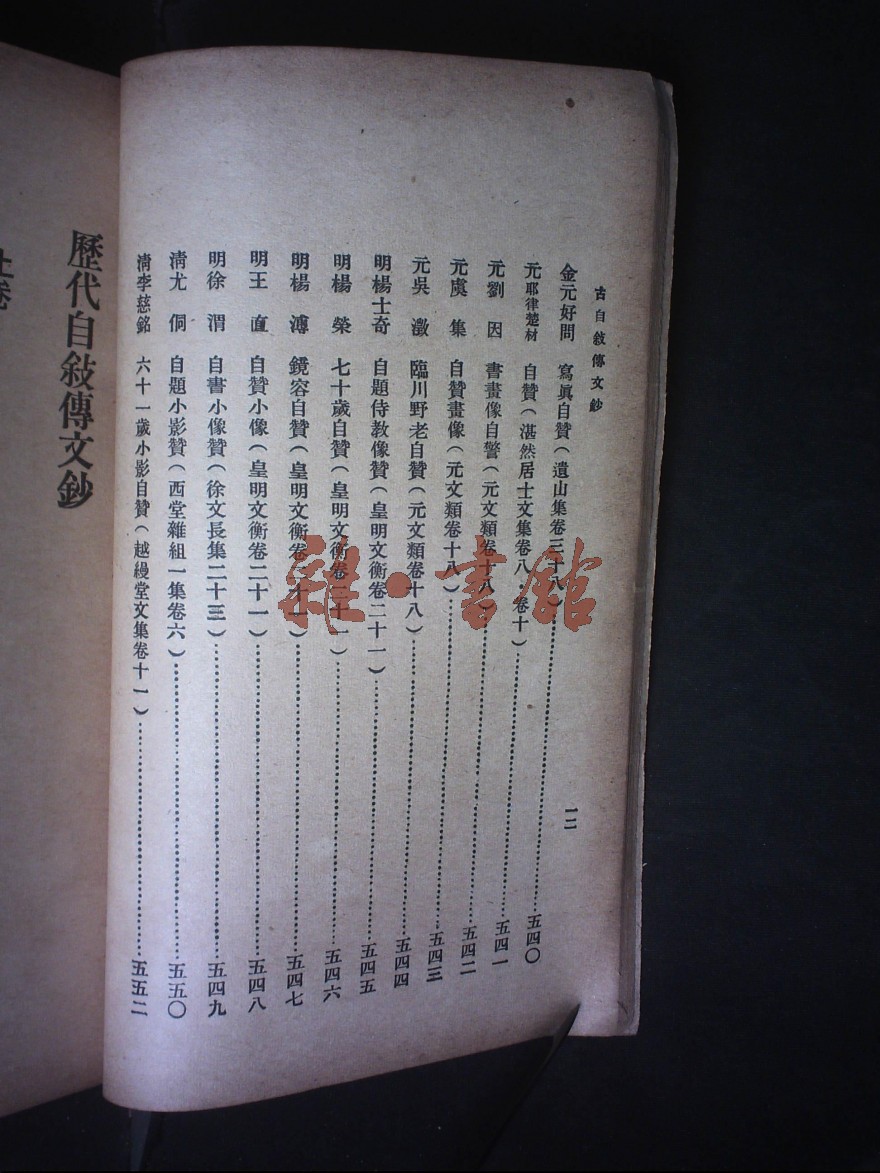 古自敍傳文鈔
一二
金元好問 寫眞自贊（遺山集卷三十八）……五四〇
元耶律楚材 自贊（湛然居士文集卷八・卷十）……五四一
元劉因 書畫像自警（元文類卷十八）……五四二
元虞集 自贊畫像（元文類卷十八）……五四三
元吳澂 臨川野老自贊（元文類卷十八）……五四四
明楊士奇 自題侍教像贊（皇明文衡卷二十一）……五四五
明楊榮 七十歲自贊（皇明文衡卷二十一）……五四六
明楊溥 鏡容自贊（皇明文衡卷二十一）……五四七
明王直 自贊小像（皇明文衡卷二十一）……五四八
明徐渭 自書小像贊（徐文長集二十三）……五四九
淸尤侗 自題小影贊（西堂雜組一集卷六）……五五〇
淸李慈銘 六十一歲小影自贊（越縵堂文集卷十一）……五五二
歷代自敍傳文鈔
上卷
雜・書館